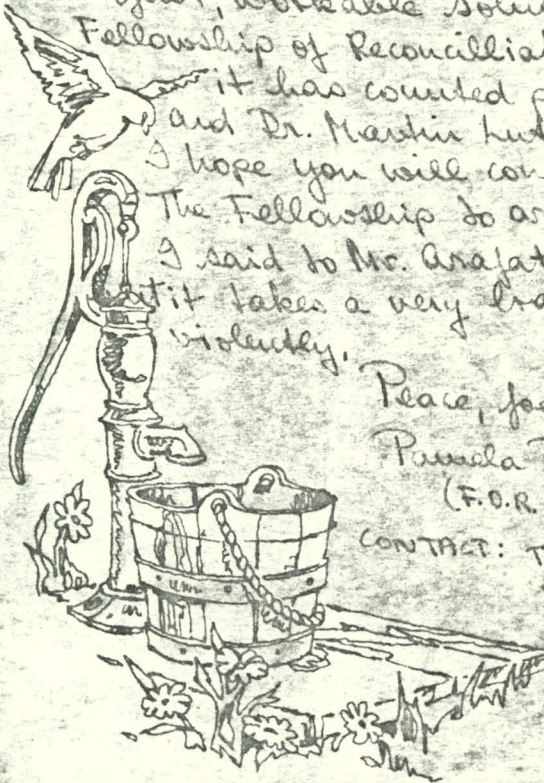 workable
Fellowship of Reconcillia
it has counted
and Dr. Martin Lut
I hope you will con
The Fellowship to a
I said to Mr. Arafat
it takes a very bra
violently.
Peace,
Pamela
(F.O.R.
CONTACT: T